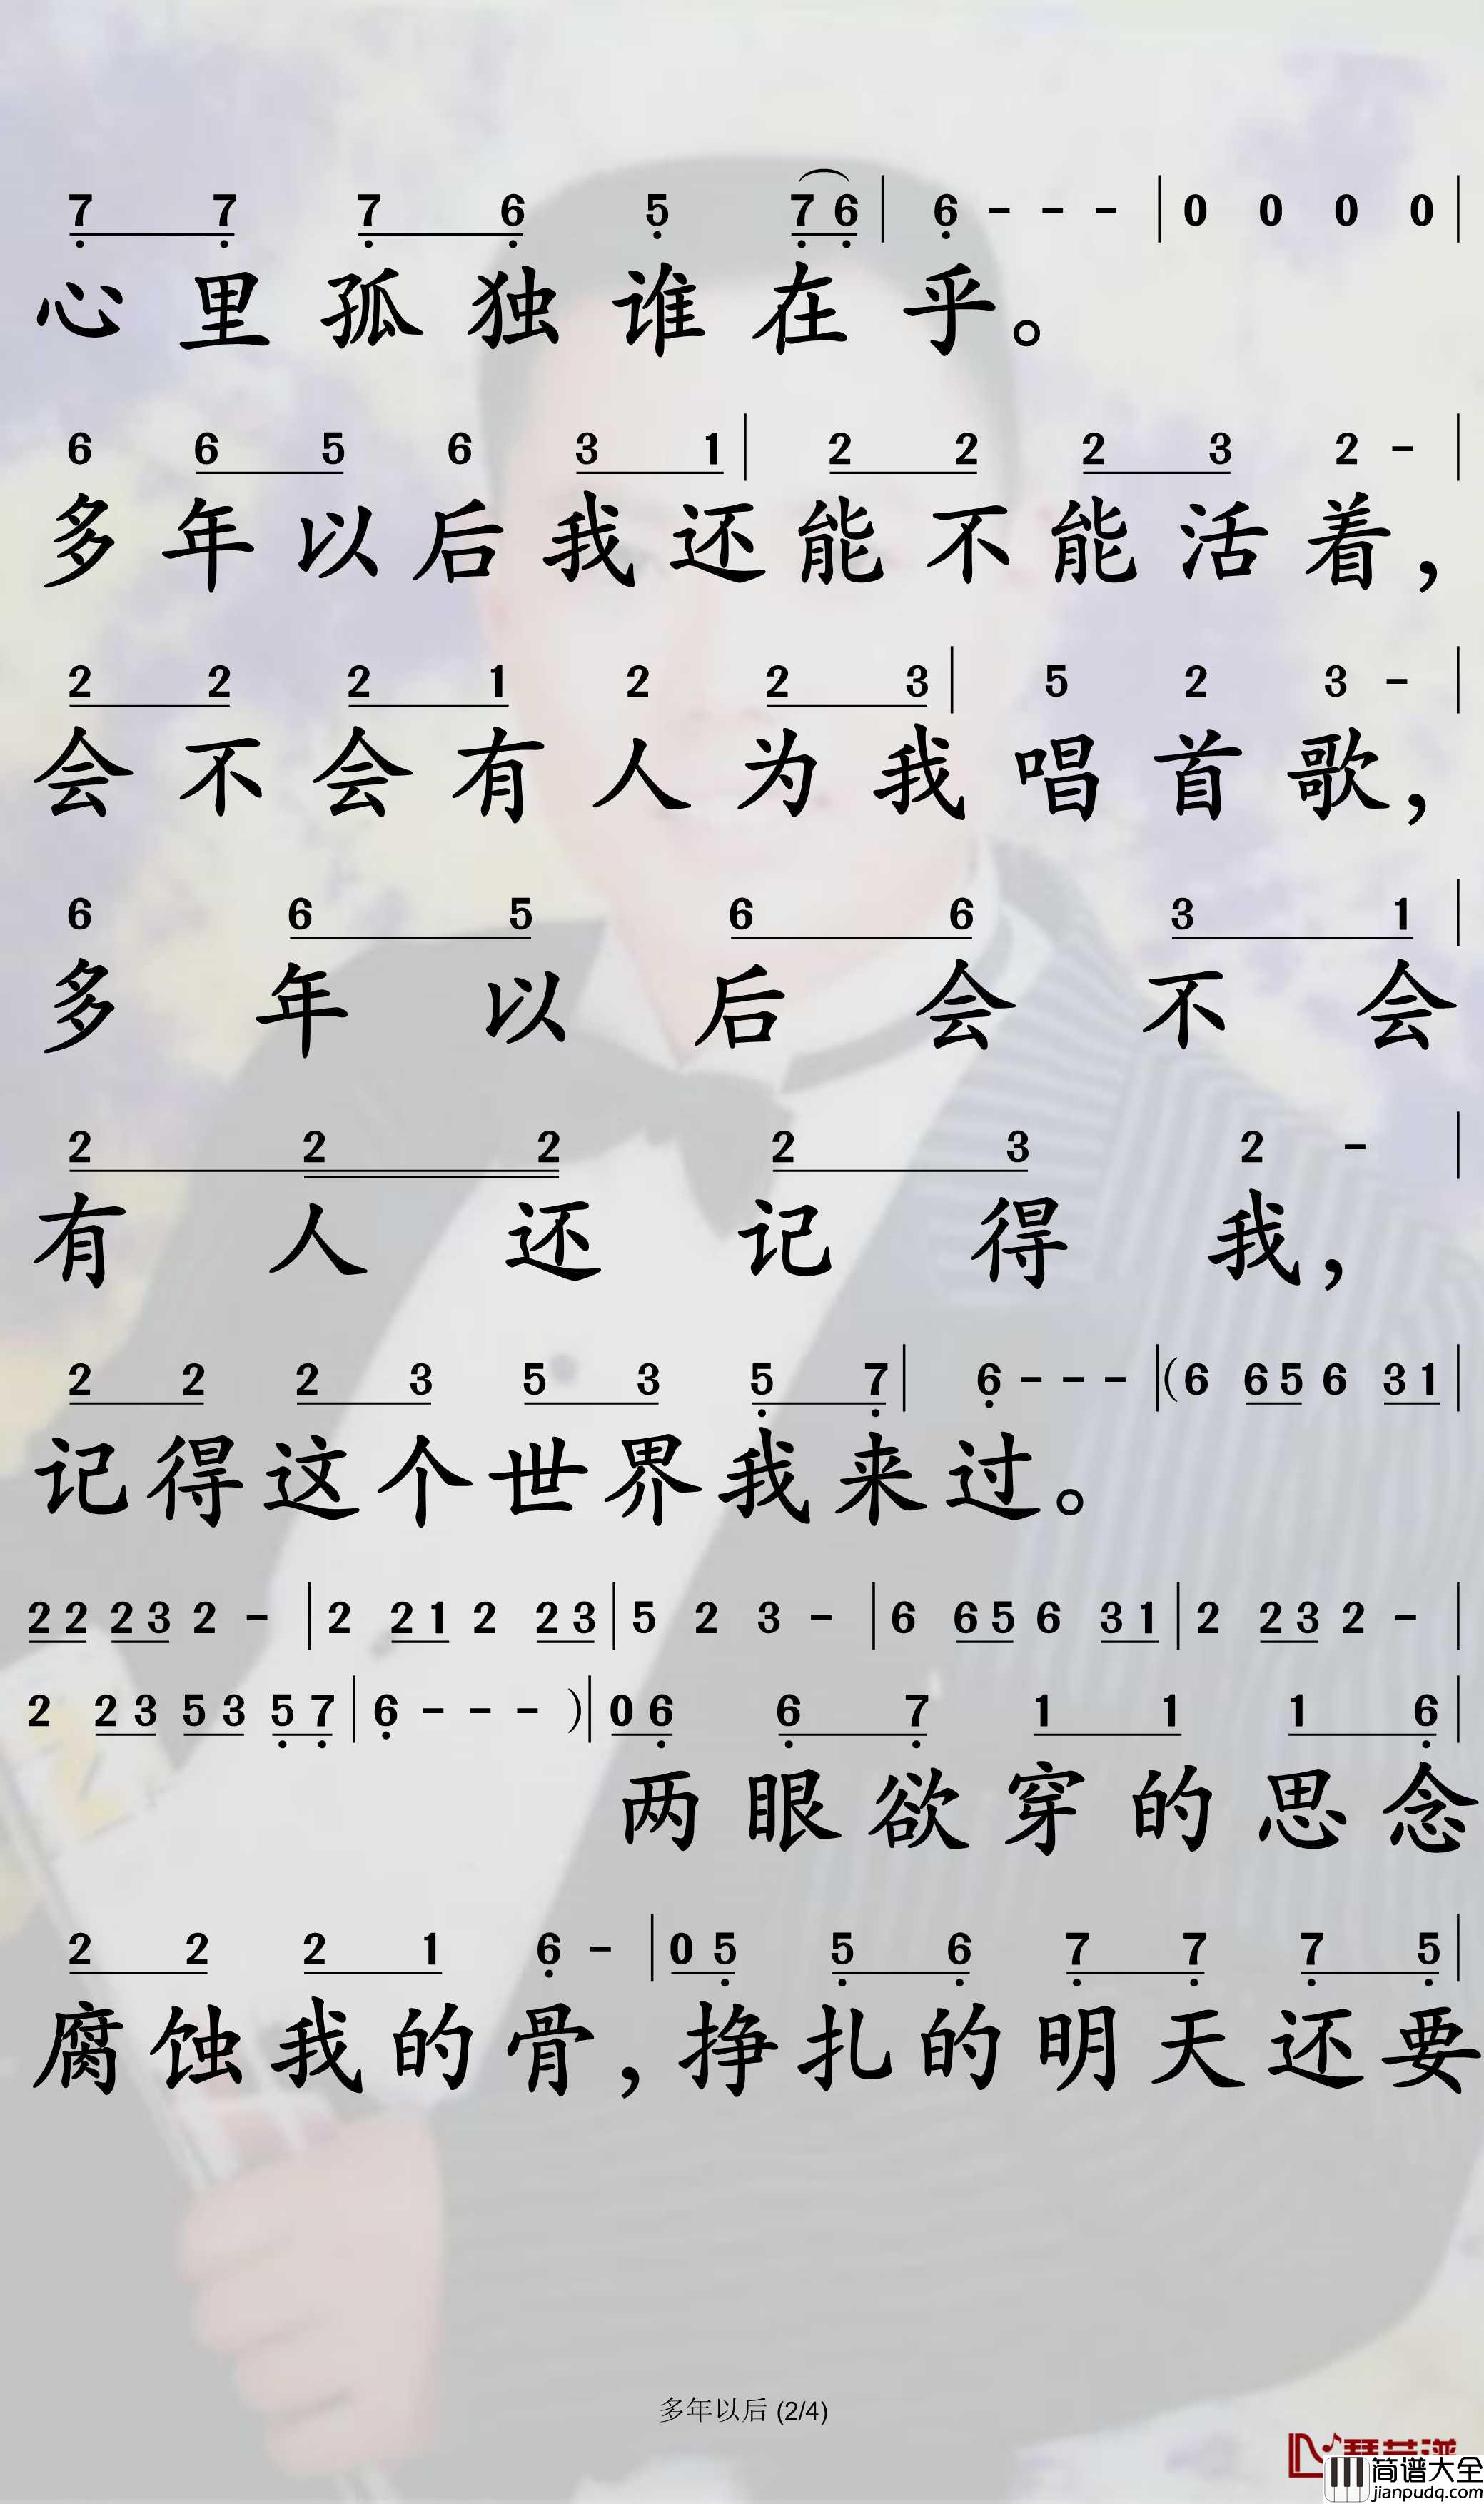 7 7 7 6 5 7 6 | 6 - - - | 0 0 0 0 |
心里孤独谁在乎。
6 6 5 6 3 1 | 2 2 2 3 2 - |
多年以后我还能不能活着，
2 2 2 1 2 2 3 | 5 2 3 - |
会不会有人为我唱首歌，
6 6 5 6 6 3 1 |
多年以后会不会
2 2 2 2 3 2 - |
有人还记得我，
2 2 2 3 5 3 5 7 | 6 - - - | (6 6 5 6 3 1 |
记得这个世界我来过。
2 2 2 3 2 - | 2 2 1 2 2 3 | 5 2 3 - | 6 6 5 6 3 1 | 2 2 3 2 - |
2 2 3 5 3 5 7 | 6 - - - ) | 0 6 6 7 1 1 1 6 |
两眼欲穿的思念
2 2 2 1 6 - | 0 5 5 6 7 7 7 5 |
腐蚀我的骨，挣扎的明天还要
多年以后 (2/4)
简谱大全
jianpudq.com